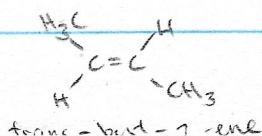 H₃C H
C=C
H CH₃
trans-but-2-ene